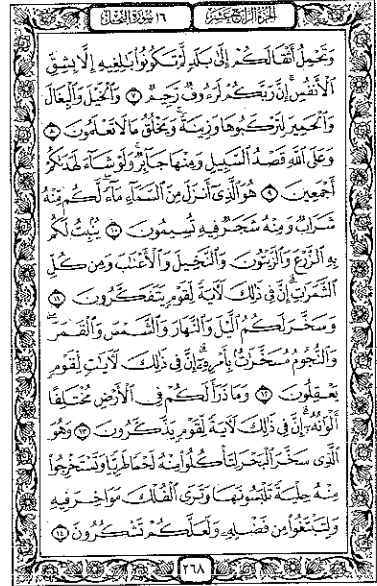 الجزء الرابع عشر
١٦ سورة النحل
وَتَحْمِلُ أَثْقَالَكُمْ إِلَىٰ بَلَدٍ لَّمْ تَكُونُوا۟ بَٰلِغِيهِ إِلَّا بِشِقِّ
ٱلْأَنفُسِ إِنَّ رَبَّكُمْ لَرَءُوفٌ رَّحِيمٌ ٧ وَٱلْخَيْلَ وَٱلْبِغَالَ
وَٱلْحَمِيرَ لِتَرْكَبُوهَا وَزِينَةً وَيَخْلُقُ مَا لَا تَعْلَمُونَ ٨
وَعَلَى ٱللَّهِ قَصْدُ ٱلسَّبِيلِ وَمِنْهَا جَآئِرٌ وَلَوْ شَآءَ لَهَدَىٰكُمْ
أَجْمَعِينَ ٩ هُوَ ٱلَّذِىٓ أَنزَلَ مِنَ ٱلسَّمَآءِ مَآءً لَّكُم مِّنْهُ
شَرَابٌ وَمِنْهُ شَجَرٌ فِيهِ تُسِيمُونَ ١٠ يُنۢبِتُ لَكُم
بِهِ ٱلزَّرْعَ وَٱلزَّيْتُونَ وَٱلنَّخِيلَ وَٱلْأَعْنَٰبَ وَمِن كُلِّ
ٱلثَّمَرَٰتِ إِنَّ فِى ذَٰلِكَ لَءَايَةً لِّقَوْمٍ يَتَفَكَّرُونَ ١١
وَسَخَّرَ لَكُمُ ٱلَّيْلَ وَٱلنَّهَارَ وَٱلشَّمْسَ وَٱلْقَمَرَ
وَٱلنُّجُومُ مُسَخَّرَٰتٌۢ بِأَمْرِهِۦٓ إِنَّ فِى ذَٰلِكَ لَءَايَٰتٍ لِّقَوْمٍ
يَعْقِلُونَ ١٢ وَمَا ذَرَأَ لَكُمْ فِى ٱلْأَرْضِ مُخْتَلِفًا
أَلْوَٰنُهُۥٓ إِنَّ فِى ذَٰلِكَ لَءَايَةً لِّقَوْمٍ يَذَّكَّرُونَ ١٣ وَهُوَ
ٱلَّذِى سَخَّرَ ٱلْبَحْرَ لِتَأْكُلُوا۟ مِنْهُ لَحْمًا طَرِيًّا وَتَسْتَخْرِجُوا۟
مِنْهُ حِلْيَةً تَلْبَسُونَهَا وَتَرَى ٱلْفُلْكَ مَوَاخِرَ فِيهِ
وَلِتَبْتَغُوا۟ مِن فَضْلِهِۦ وَلَعَلَّكُمْ تَشْكُرُونَ ١٤
٢٦٨